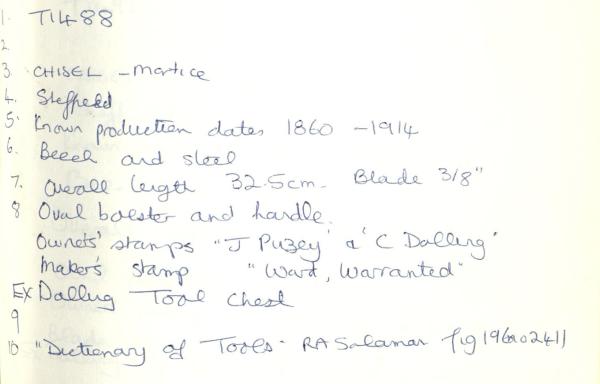 1. T1488
2
3. CHISEL - mortice
4. Sheffield
5. Known production dates 1860 - 1914
6. Beech and steel
7. Overall length 32.5cm. Blade 3/8"
8 Oval bolster and handle.
Owners' stamps "J Puzey' & 'C Dalling'
Maker's stamp "Ward, Warranted"
Ex Dalling Tool chest
9
10 "Dictionary of Tools - RA Salaman fig 196